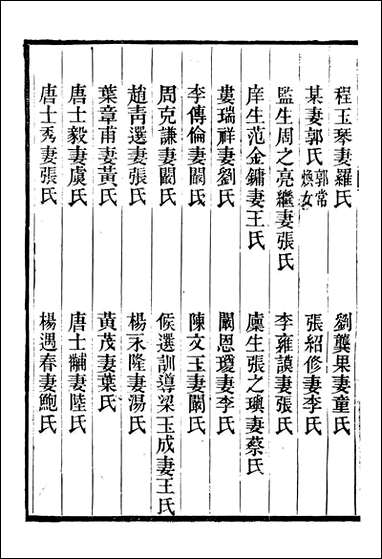 程玉琴妻羅氏　劉龔果妻童氏
某妻郭氏郭常煥女　張紹修妻李氏
監生周之亮繼妻張氏　李雍謨妻張氏
庠生范金鏞妻王氏　廩生張之璵妻蔡氏
婁瑞祥妻劉氏　闞恩瓊妻李氏
李傳倫妻闞氏　陳文玉妻闞氏
周克謙妻閻氏　候選訓導梁玉成妻王氏
趙靑選妻張氏　楊永隆妻湯氏
葉章甫妻黃氏　黃茂妻葉氏
唐士毅妻虞氏　唐士黼妻陸氏
唐士秀妻張氏　楊遇春妻鮑氏